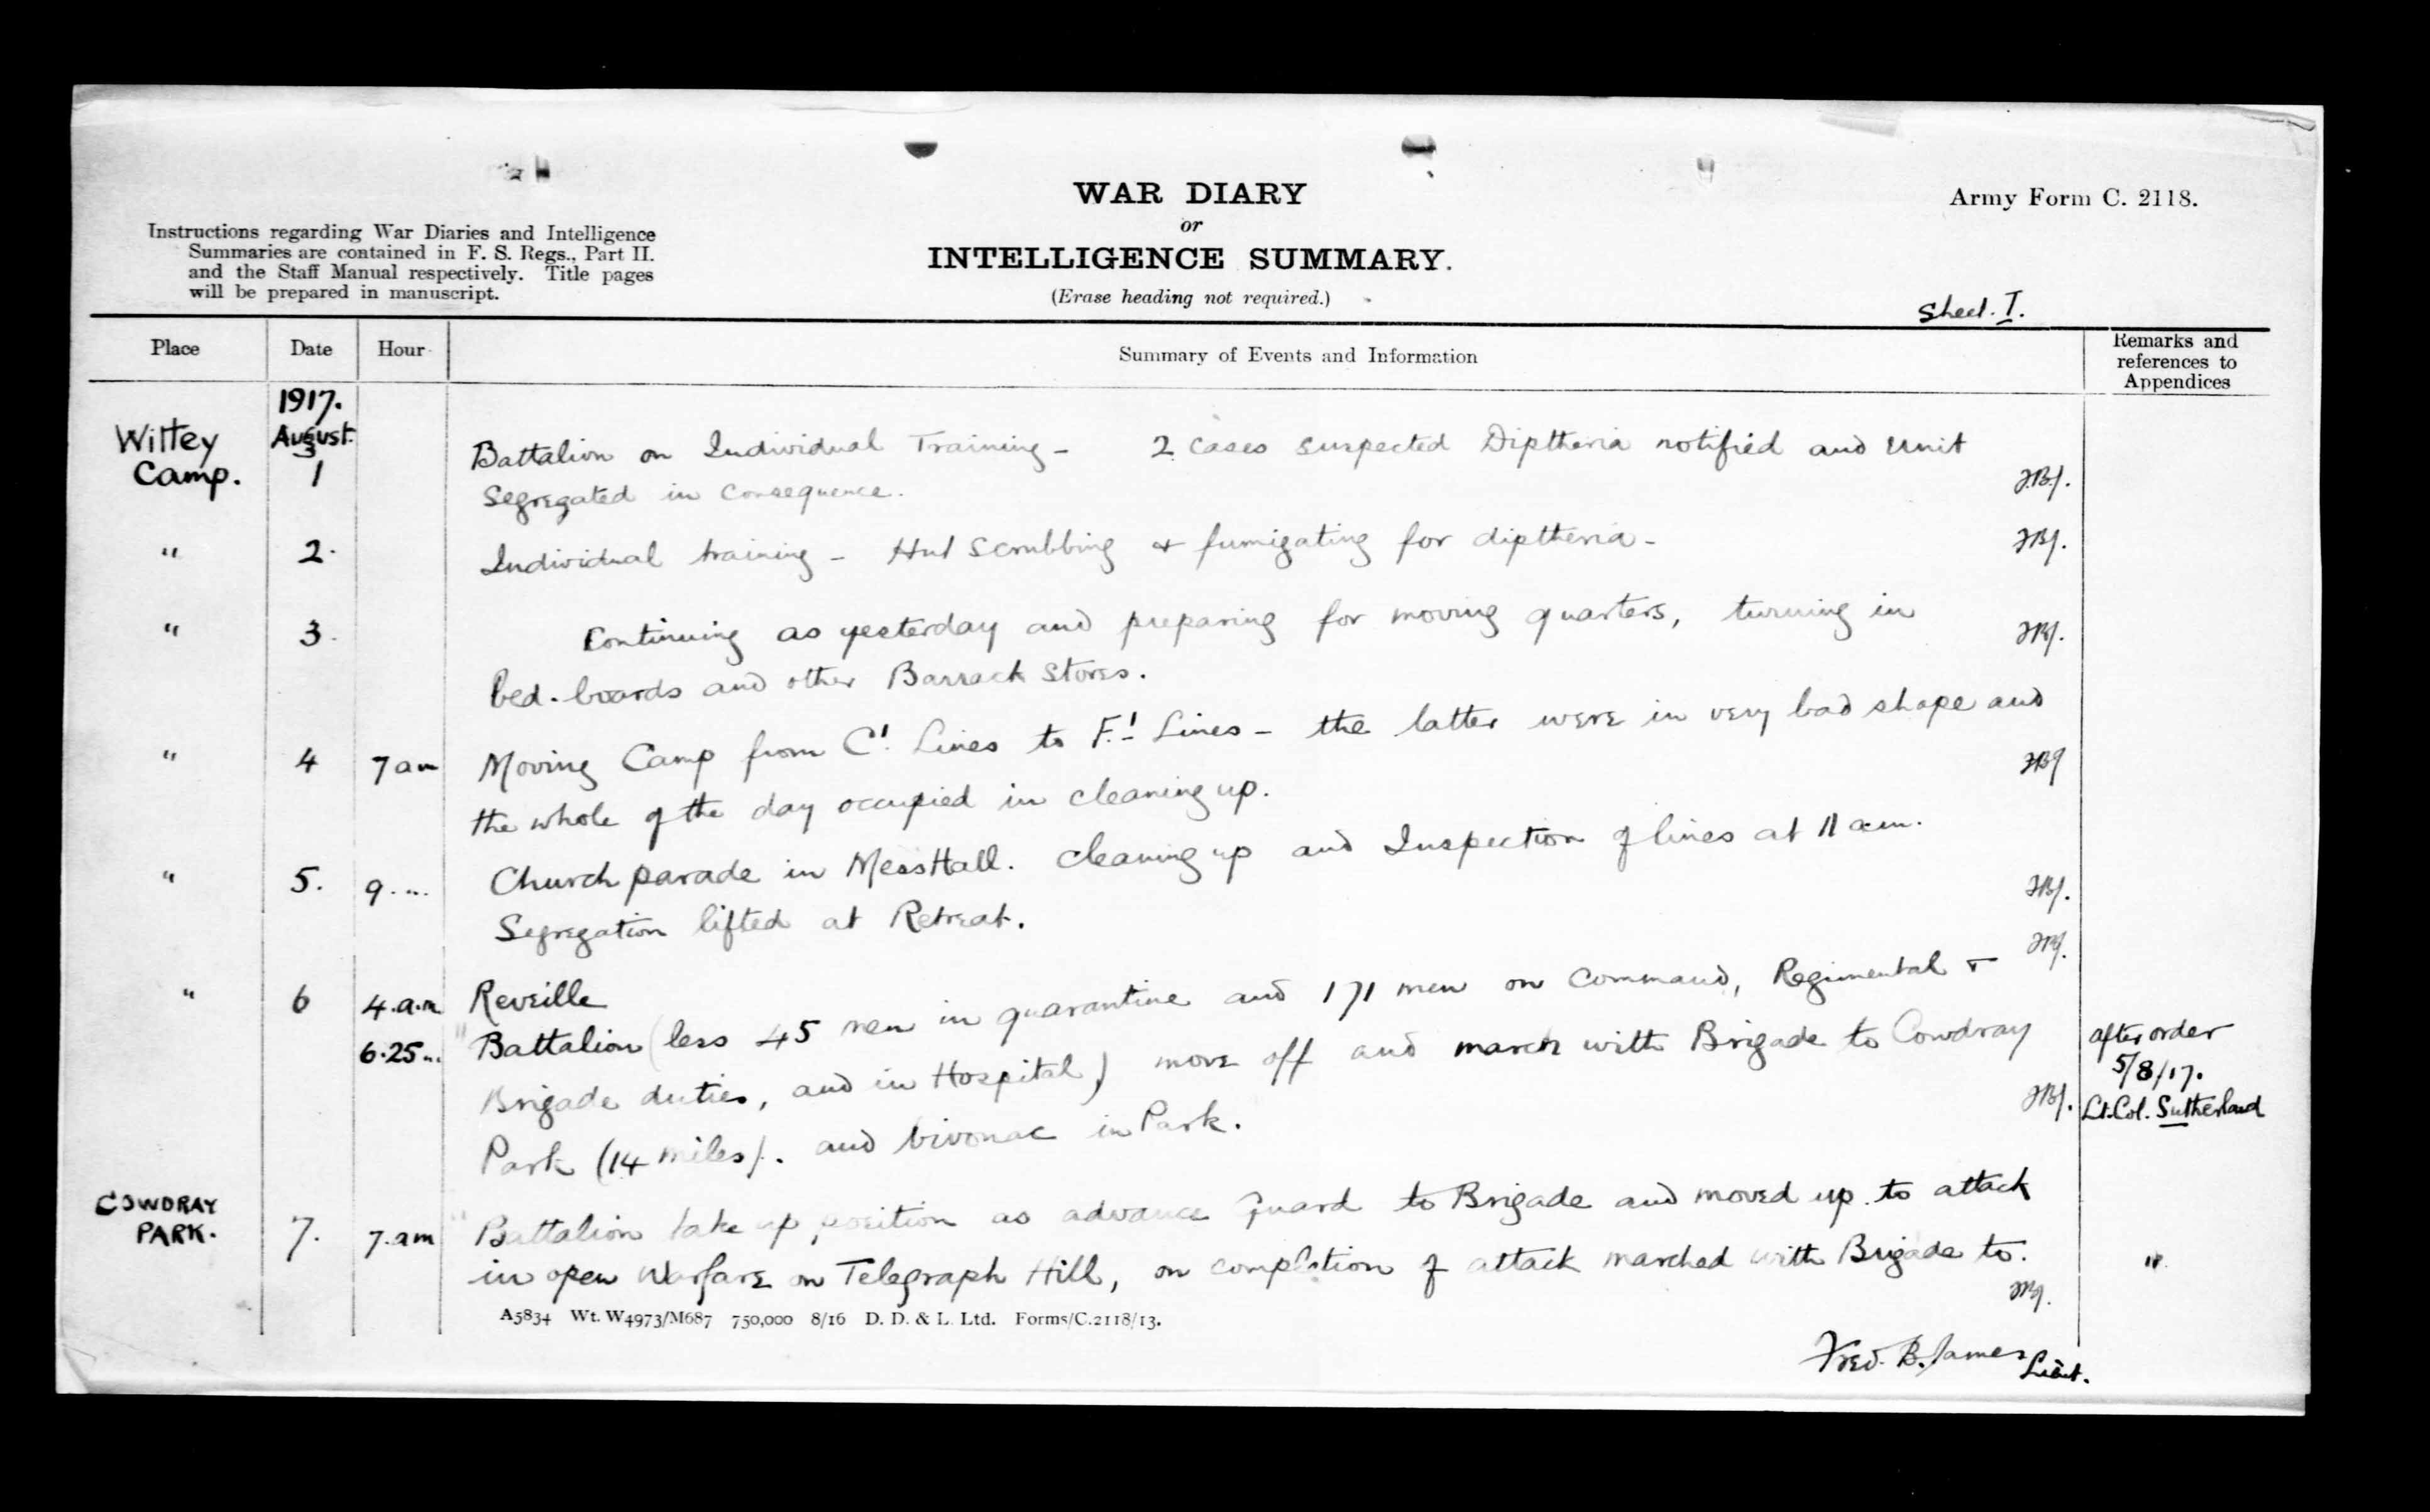 WAR DIARY
Army Form C. 2118.
or
Instructions regarding War Diaries and Intelligence
Summaries are contained in F. S. Regs., Part II.
and the Staff Manual respectively. Title pages
will be prepared in manuscript.
INTELLIGENCE SUMMARY.
(Erase heading not required.)
Sheet. I.
Place Date Hour Summary of Events and Information Remarks and references to Appendices
1917.
Witley August. Battalion on Individual Training - 2 cases suspected Diptheria notified and Unit
Camp. 1 Segregated in consequence. FBJ.
" 2. Individual training - Hut Scrubbing & fumigating for diptheria - FBJ.
" 3. Continuing as yesterday and preparing for moving quarters, turning in FBJ.
bed-boards and other Barrack Stores.
" 4 7 am Moving Camp from C'. Lines to F'. Lines - the latter were in very bad shape and FBJ
the whole of the day occupied in cleaning up.
" 5. 9 . ... Church parade in Mess Hall. Cleaning up and Inspection of lines at 11 a.m. FBJ.
Segregation lifted at Retreat. FBJ.
" 6 4.a.m. Reveille
6.25 ... " Battalion (less 45 men in quarantine and 171 men on Command, Regimental & after order
Brigade duties, and in Hospital) move off and march with Brigade to Cowdray 5/8/17.
Park (14 miles). and bivouac in Park. FBJ. Lt.Col. Sutherland
COWDRAY
PARK. 7. 7.am " Battalion take up position as advance Guard to Brigade and moved up to attack
in open Warfare on Telegraph Hill, on completion of attack marched with Brigade to. "
FBJ.
A5834 Wt. W4973/M687 750,000 8/16 D. D. & L. Ltd. Forms/C.2118/13.
Fred. B. James Lieut.